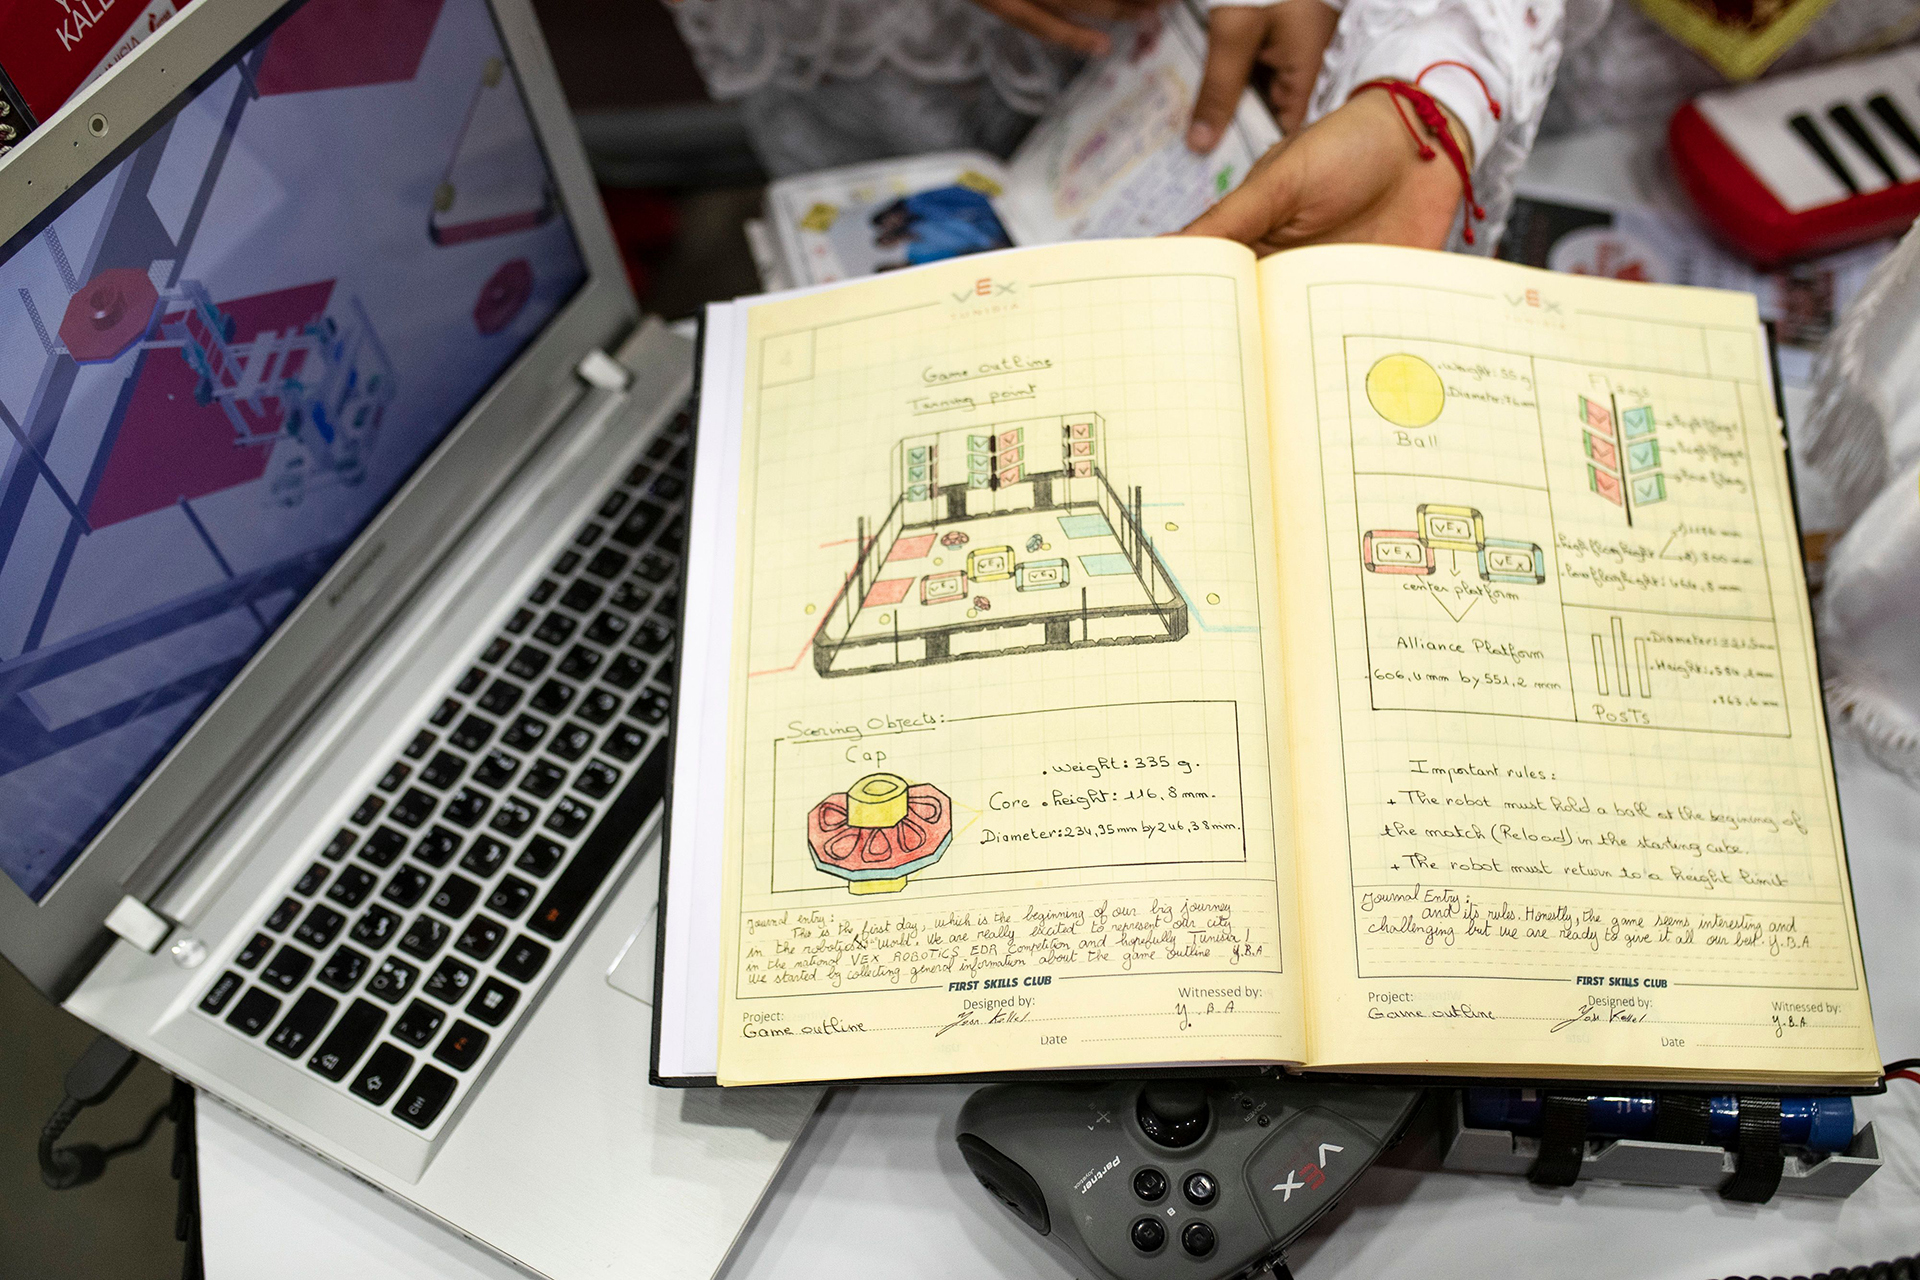 VEX
TUNISIA
Game outline
Turning point
VEX
VEX
VEX
Scoring Objects:
Cap
. weight: 335 g.
Core . height: 116,8 mm.
Diameter: 234,95mm by 246,38mm.
Journal entry:
This is the first day, which is the beginning of our big journey
in the robotics "world. We are really excited to represent our city
in the national VEX ROBOTICS EDR Competition and hopefully Tunisia!
We started by collecting general information about the game outline Y.B.A
FIRST SKILLS CLUB
Project:
Game outline
Designed by:
Witnessed by:
Y.B.A
Date
VEX
TUNISIA
. Weight: 55 g
Ball
Flags
VEX
VEX
VEX
center platform
Alliance Platform
606,4 mm by 551,2 mm
Diameter:
Height:
Posts
Important rules:
+ The robot must hold a ball at the begining of
the match (Reload) in the starting cube.
+ The robot must return to a height limit
Journal Entry:
and its rules. Honestly, the game seems interesting and
challenging but we are ready to give it all our best. Y.B.A
FIRST SKILLS CLUB
Project:
Game outline
Designed by:
Witnessed by:
Y.B.A
Date
VEX
Partner
Joystick
Ctrl
Fn